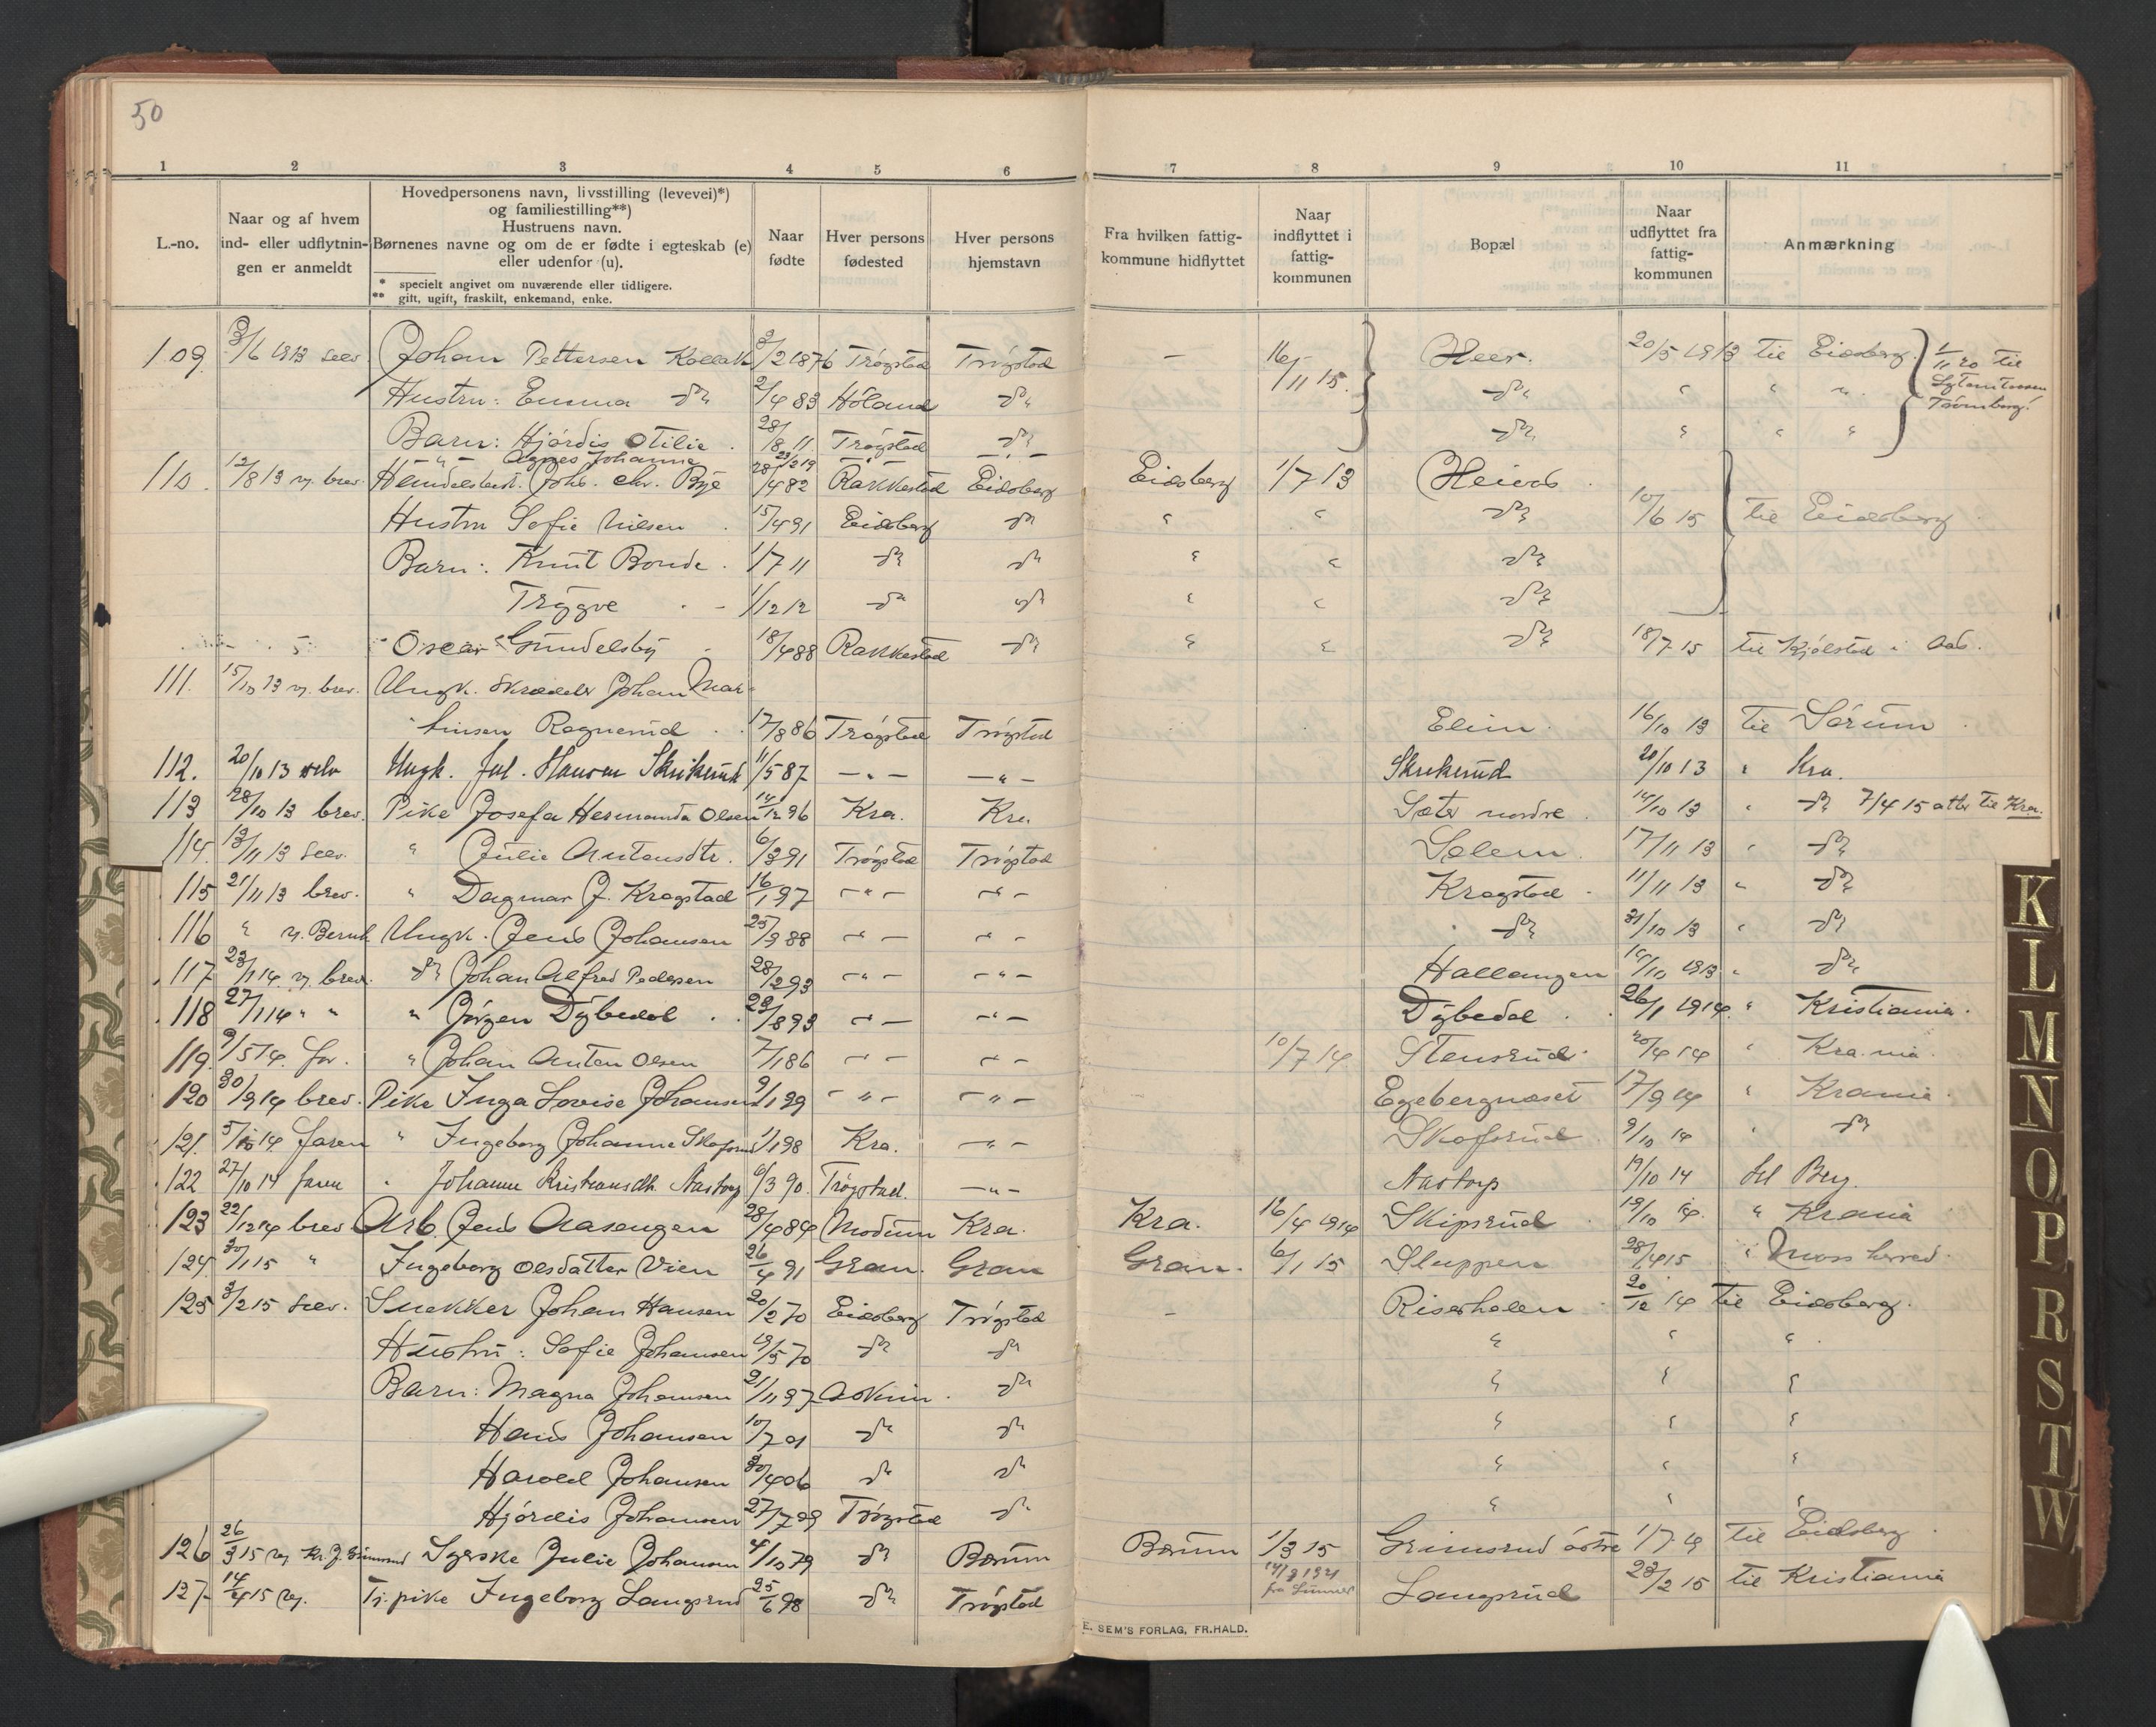 50
1 2 3 4 5 6 7 8 9 10 11
L.-no.
Naar og af hvem
ind- eller udflytnin-
gen er anmeldt
Hovedpersonens navn, livsstilling (levevei)*)
og familiestilling**)
Hustruens navn.
Børnenes navne og om de er fødte i egteskab (e)
eller udenfor (u).
* specielt angivet om nuværende eller tidligere.
** gift, ugift, fraskilt, enkemand, enke.
Naar
fødte
Hver persons
fødested
Hver persons
hjemstavn
Fra hvilken fattig-
kommune hidflyttet
Naar
indflyttet i
fattig-
kommunen
Bopæl
Naar
udflyttet fra
fattig-
kommunen
Anmærkning
109 3/6 1913 selv Johan Pettersen 3/2 1876 Trøgstad Trøgstad — 16/11 15 Heer. 20/5 1913 til Eidsberg 1/11 20 til
Hustru: Emma do 2/4 83 Høland do do " " "
Barn: Hjørdis Otilie 28/8 11 Trøgstad do do " " "
" Agnes Johanne
110 12/8 13 brev. Joh. Chr. Bye 28/4 82 Rakkestad Eidsberg Eidsberg 1/7 13
Hustru Sofie Nilsen 15/4 91 Eidsberg do " " do 10/6 15 til Eidsberg
Barn: Knut Bonde 1/7 11 do do " " do
Trygve 1/12 12 do do " " do
Oscar Gundelsby 18/4 88 Rakkestad do " " do 18/7 15 til Kjølstad i
111. 15/10 13 brev. Ungk. Skrædder Johan Mar-
tinsen Ragnerud 17/8 86 Trøgstad Trøgstad Elim 16/10 13 til Sørum
112. 20/10 13 selv Ungk. Jul. Hansen Skrikerud 11/5 87 — " — — " — Skrikerud 20/10 13 " Kra.
113 28/10 13 brev. Pike Josefa Hermanda Olsen 14/12 96 Kra. Kra Sæter nordre 14/10 13 " do 7/4 15 atter til Kra.
114. 13/11 13 Selv. " Julie Antonsdtr. 6/3 91 Trøgstad Trøgstad Salem 17/11 13 " do
115 21/11 13 brev. " Dagmar J. Kragstad 16/1 97 — " — — " — Kragstad 11/11 13 " do
116 " Ungk. Jens Johansen 25/3 88 — " — — " — do 31/10 13 " do
117 23/1 14 brev. do Johan Alfred Pedersen 28/2 93 — " — — " — Hallangen 14/10 1913 " do
118 27/1 14 " " " Jørgen Dybedal 23/8 93 — " — — " — Dybedal 26/1 1914. " Kristiania.
119. 9/5 14. far. " Johan Anton Olsen 7/1 86 — " — — " — 10/7 14 Stensrud 20/4 14 " Kra.nia
120 30/9 14 brev. Pike Inga Lovise Johansen 9/1 99 — " — — " — Egebergnæset 17/9 14 " Krania
121. 5/10 14 faren " Ingeborg Johanne 1/1 98 Kra. — " — Skofsrud 9/10 14 " do
122 27/10 14 faren " Johanne Kristiansdtr. Aastorp 6/3 90. Trøgstad. — " — Aastorp 19/10 14 til Berg.
123 22/12 14 brev Arb. Jens Aasengen 28/4 84 Modum Kra. Kra. 16/4 1914 Skipsrud 19/10 14. " Krania
124. 30/1 15 " Ingeborg Olsdatter Vien 26/4 91 Gran. Gran Gran. 6/1 15 Sluppen 28/4 15 " Moss herred
125 3/2 15 Selv. Snekker Johan Hansen 20/2 70 Eidsberg Trøgstad — Riserholen 20/12 14 til Eidsberg.
Hustru: Sofie Johansen 19/5 70 do do " " "
Barn: Magna Johansen 21/11 97 Askim. do " " "
Hans Johansen 10/7 01 do do " " "
Harald Johansen 30/4 06 do do " " "
Hjørdis Johansen 27/7 09 Trøgstad do " " "
126 26/3 15 Julie Johansen 4/10 79 do Bærum Bærum 1/3 15 Grimsrud østre 1/7 19 til Eidsberg
127 14/4 15 Tj. pike Ingeborg Langsrud 25/6 98 do Trøgstad Langsrud 23/2 15 til Kristiania
E. SEM'S FORLAG, FR.HALD.
K
L
M
N
O
P
R
S
T
W